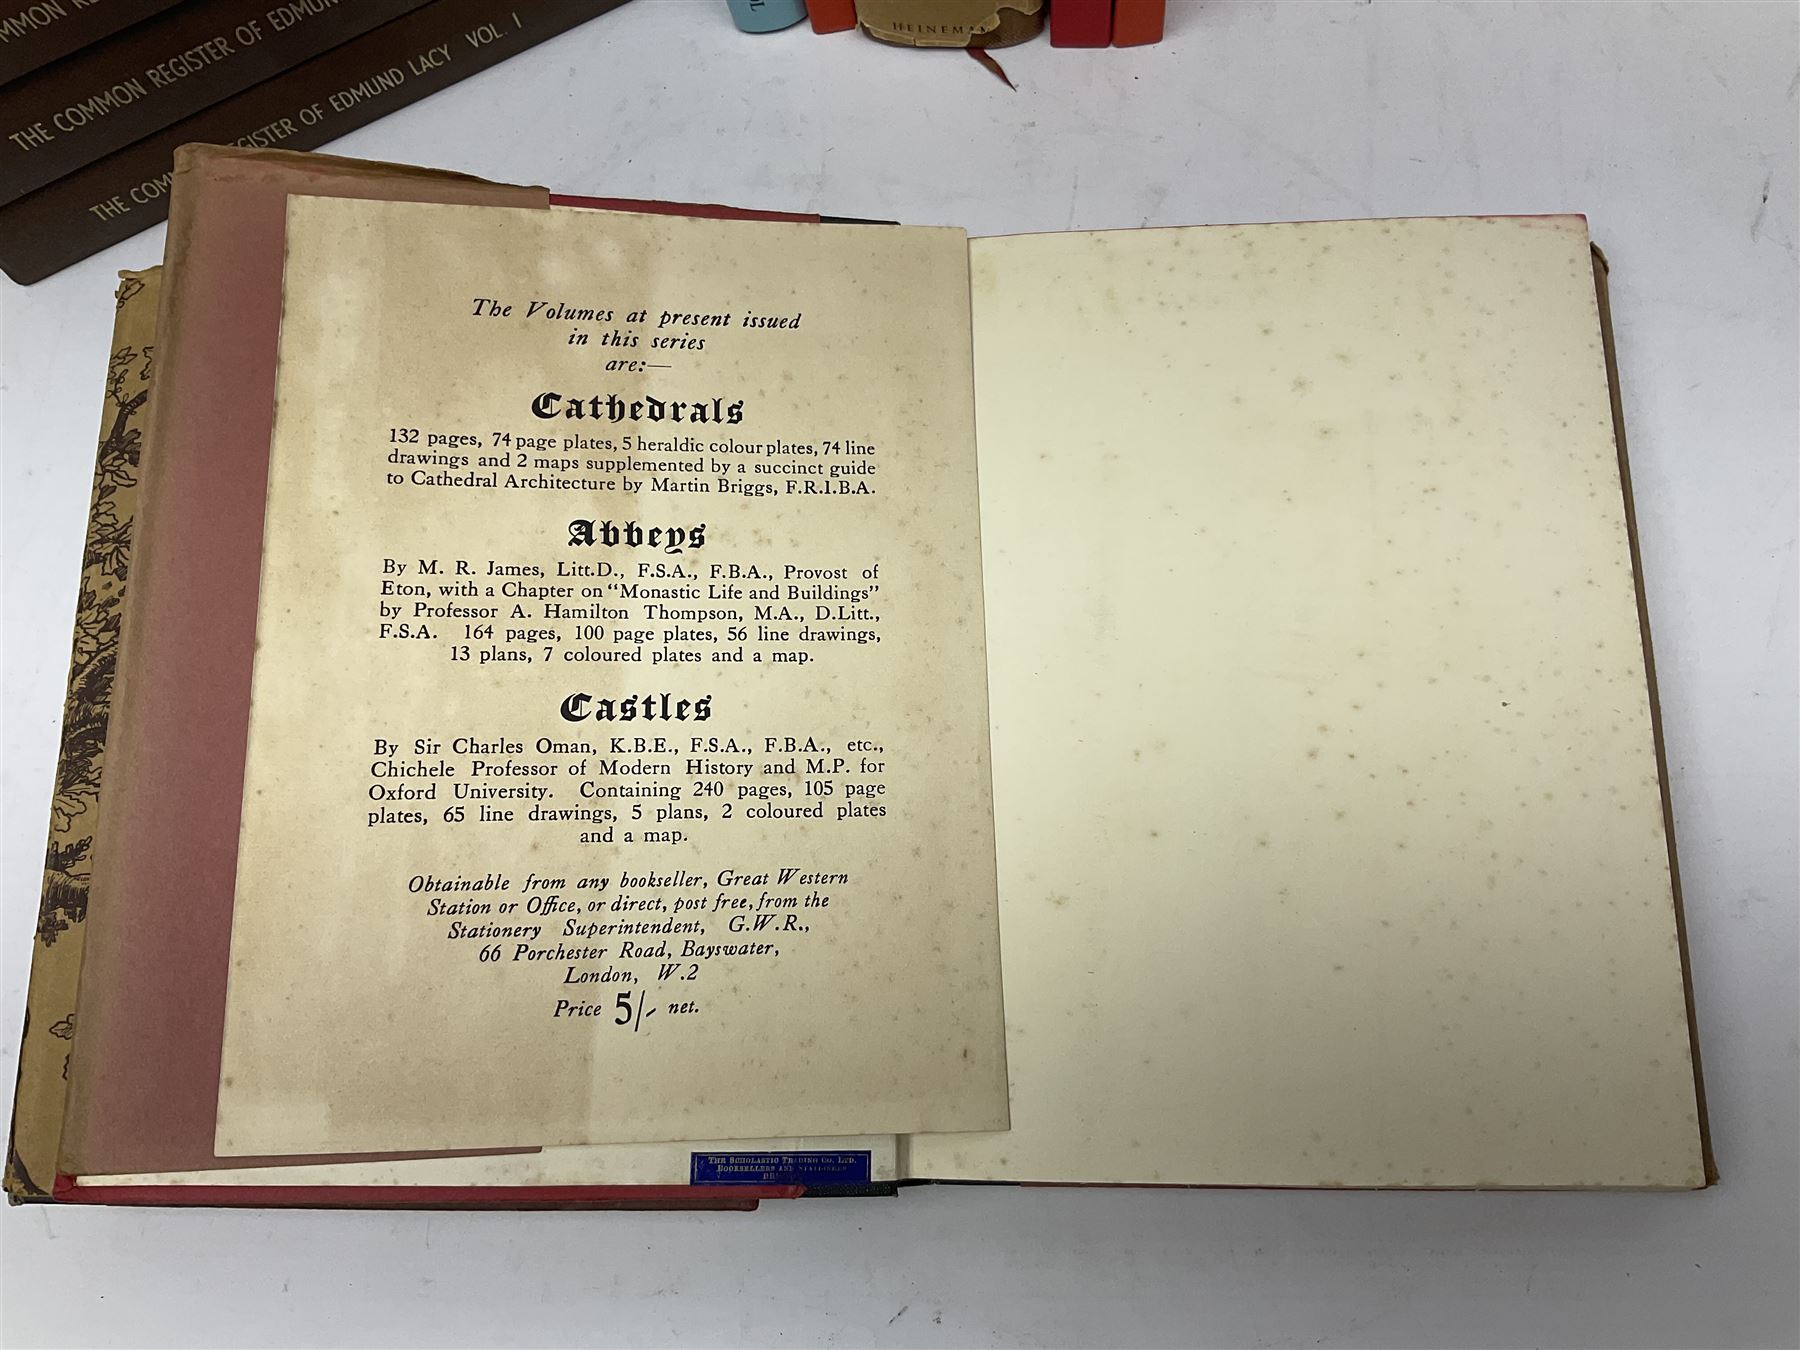 MMON RE
THE COMMON REGISTER OF EDMUN
THE COM EGISTER OF EDMUND LACY VOL. I
HEINEMAN
The Volumes at present issued
in this series
are:—
Cathedrals
132 pages, 74 page plates, 5 heraldic colour plates, 74 line
drawings and 2 maps supplemented by a succinct guide
to Cathedral Architecture by Martin Briggs, F.R.I.B.A.
Abbeys
By M. R. James, Litt.D., F.S.A., F.B.A., Provost of
Eton, with a Chapter on "Monastic Life and Buildings"
by Professor A. Hamilton Thompson, M.A., D.Litt.,
F.S.A. 164 pages, 100 page plates, 56 line drawings,
13 plans, 7 coloured plates and a map.
Castles
By Sir Charles Oman, K.B.E., F.S.A., F.B.A., etc.,
Chichele Professor of Modern History and M.P. for
Oxford University. Containing 240 pages, 105 page
plates, 65 line drawings, 5 plans, 2 coloured plates
and a map.
Obtainable from any bookseller, Great Western
Station or Office, or direct, post free, from the
Stationery Superintendent, G.W.R.,
66 Porchester Road, Bayswater,
London, W.2
Price 5/- net.
THE SCHOLASTIC TRADING CO. LTD.
BOOKSELLERS AND STATIONERS